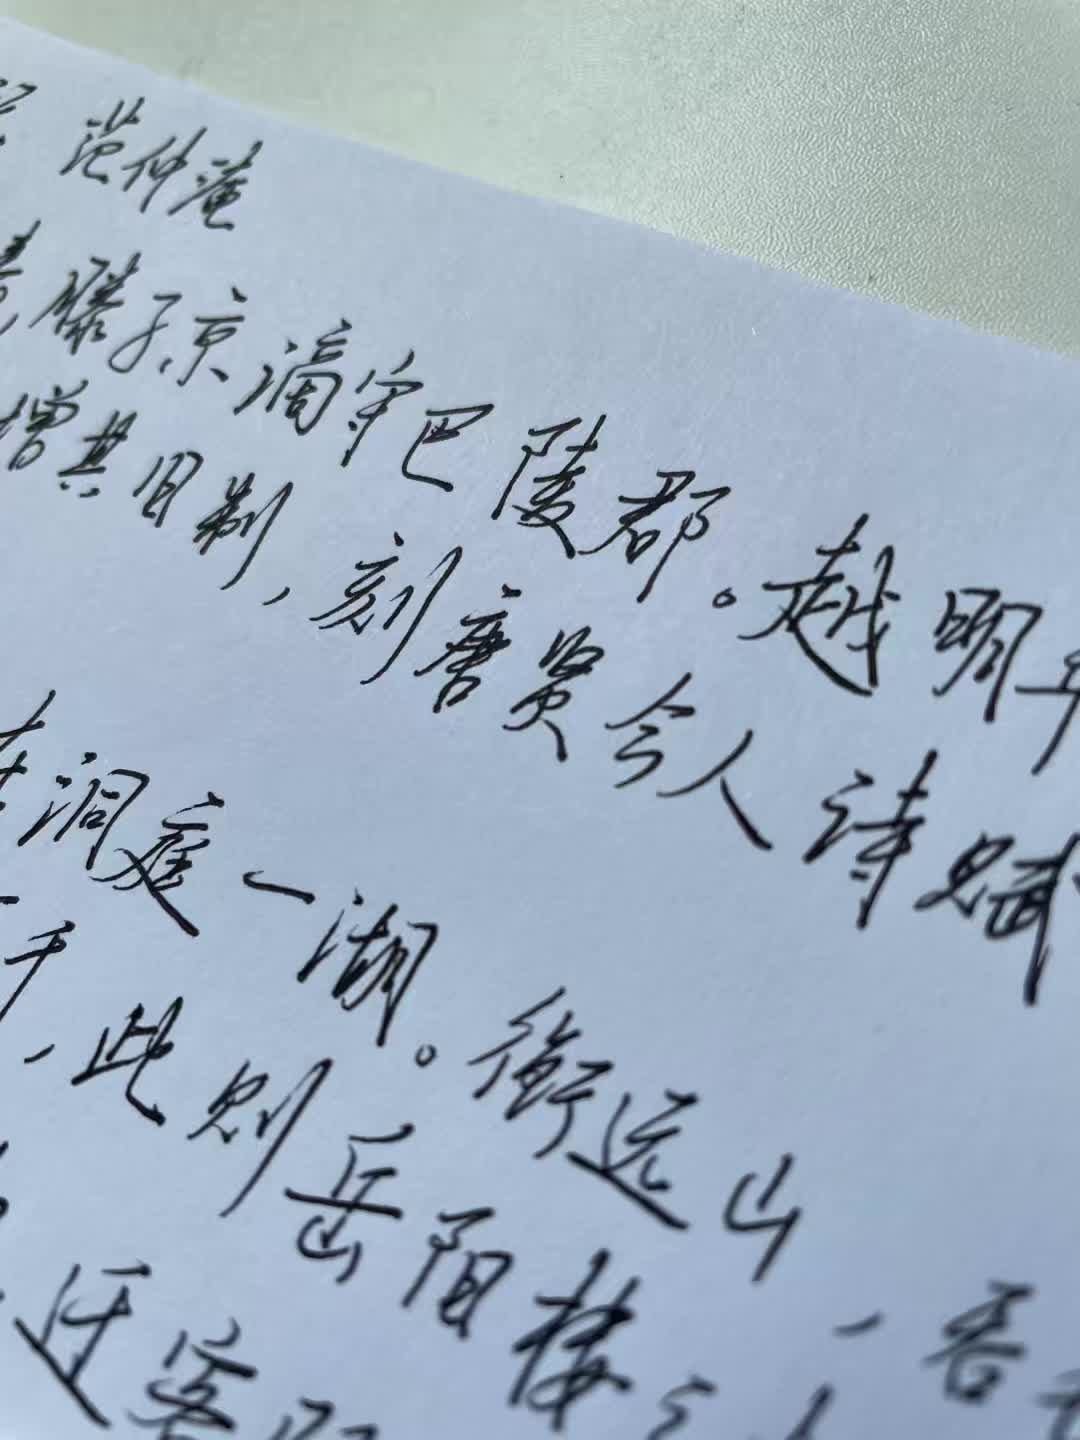 范仲淹
滕子京谪守巴陵郡。越明年
增其旧制，刻唐贤今人诗赋
在洞庭一湖。衔远山，吞
千，此则岳阳楼之
迁客